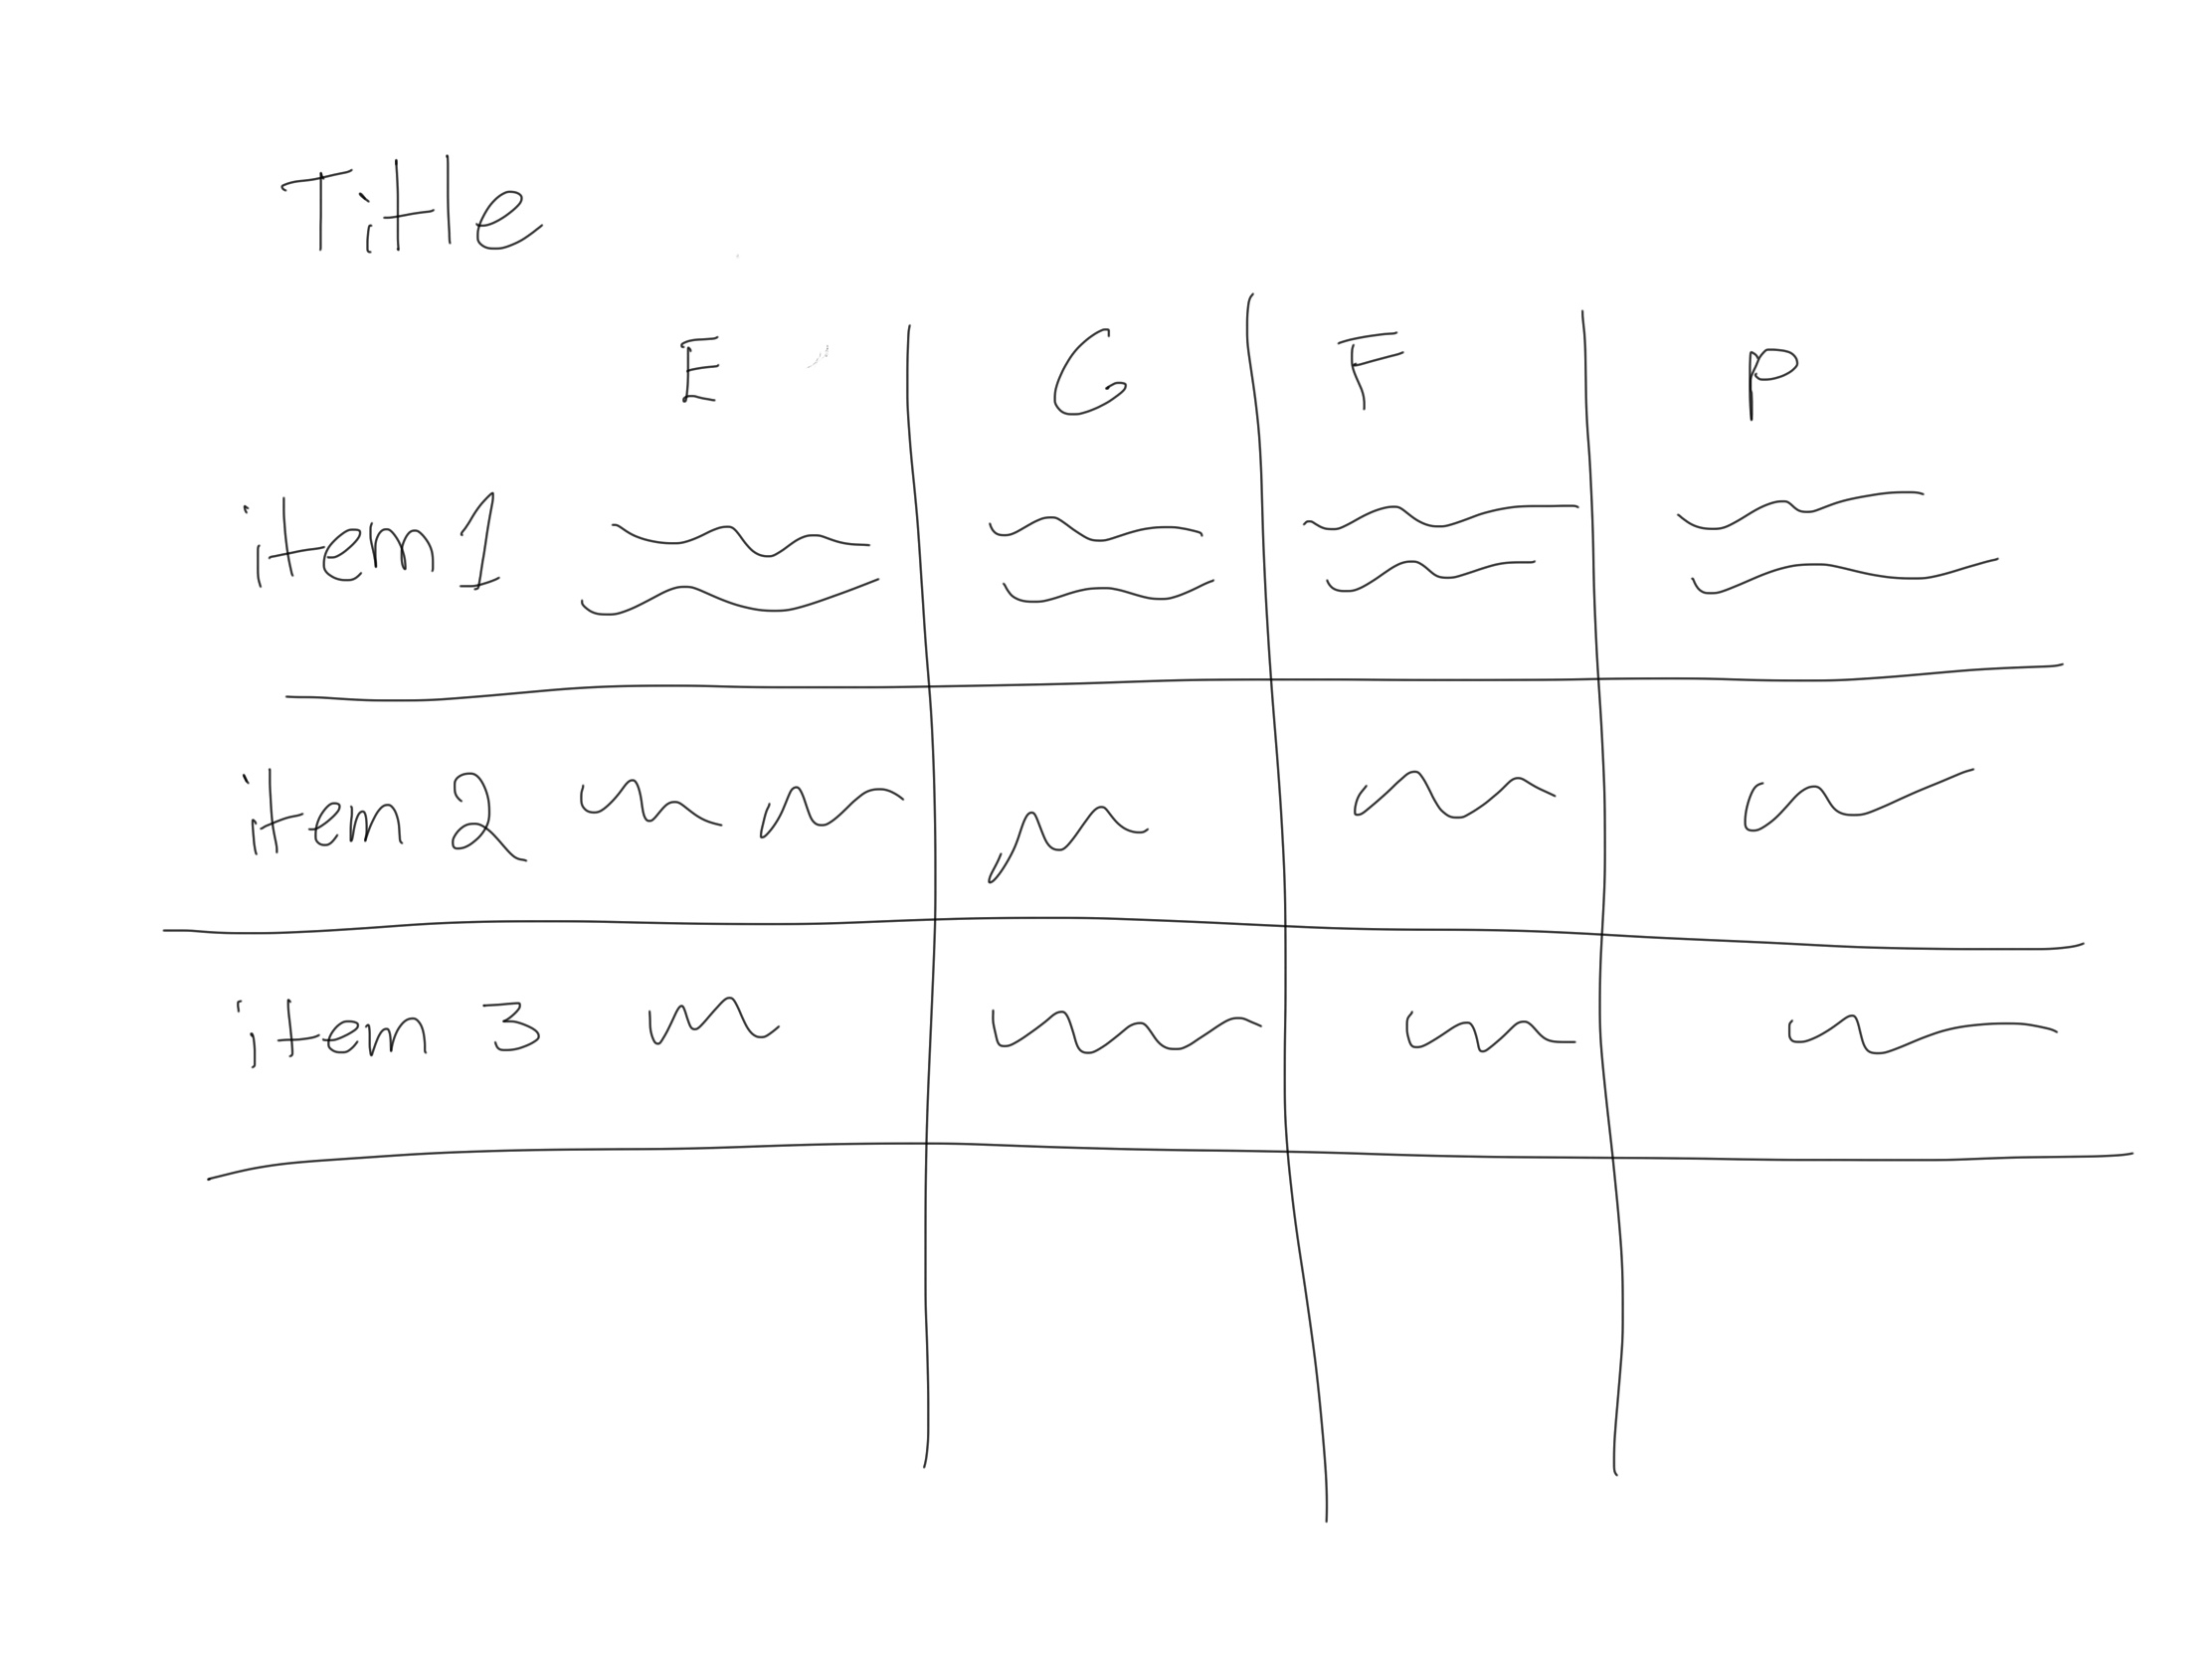 Title
E G F P
item 1
item 2
item 3